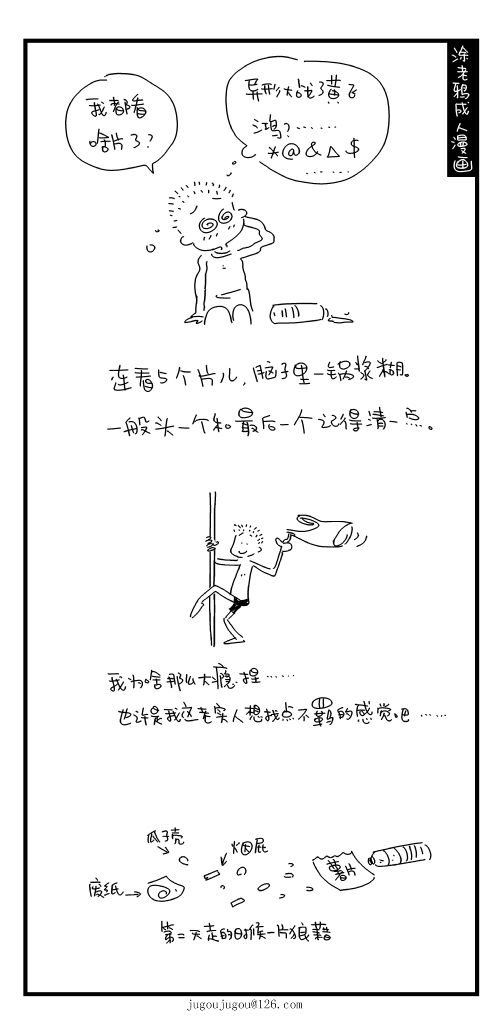 涂老鸦成人漫画
我都看
啥片了?
异形大战了黄飞
鸿?……
*@&△$
……
连看5个片儿,脑子里一锅浆糊。
一般头一个和最后一个记得清一点。
我为啥那么大瘾捏……
也许是我这老实人想找点不羁的感觉吧……
瓜子壳
烟屁
废纸
薯片
第二天走的时候一片狼藉
jugoujugou@126.com